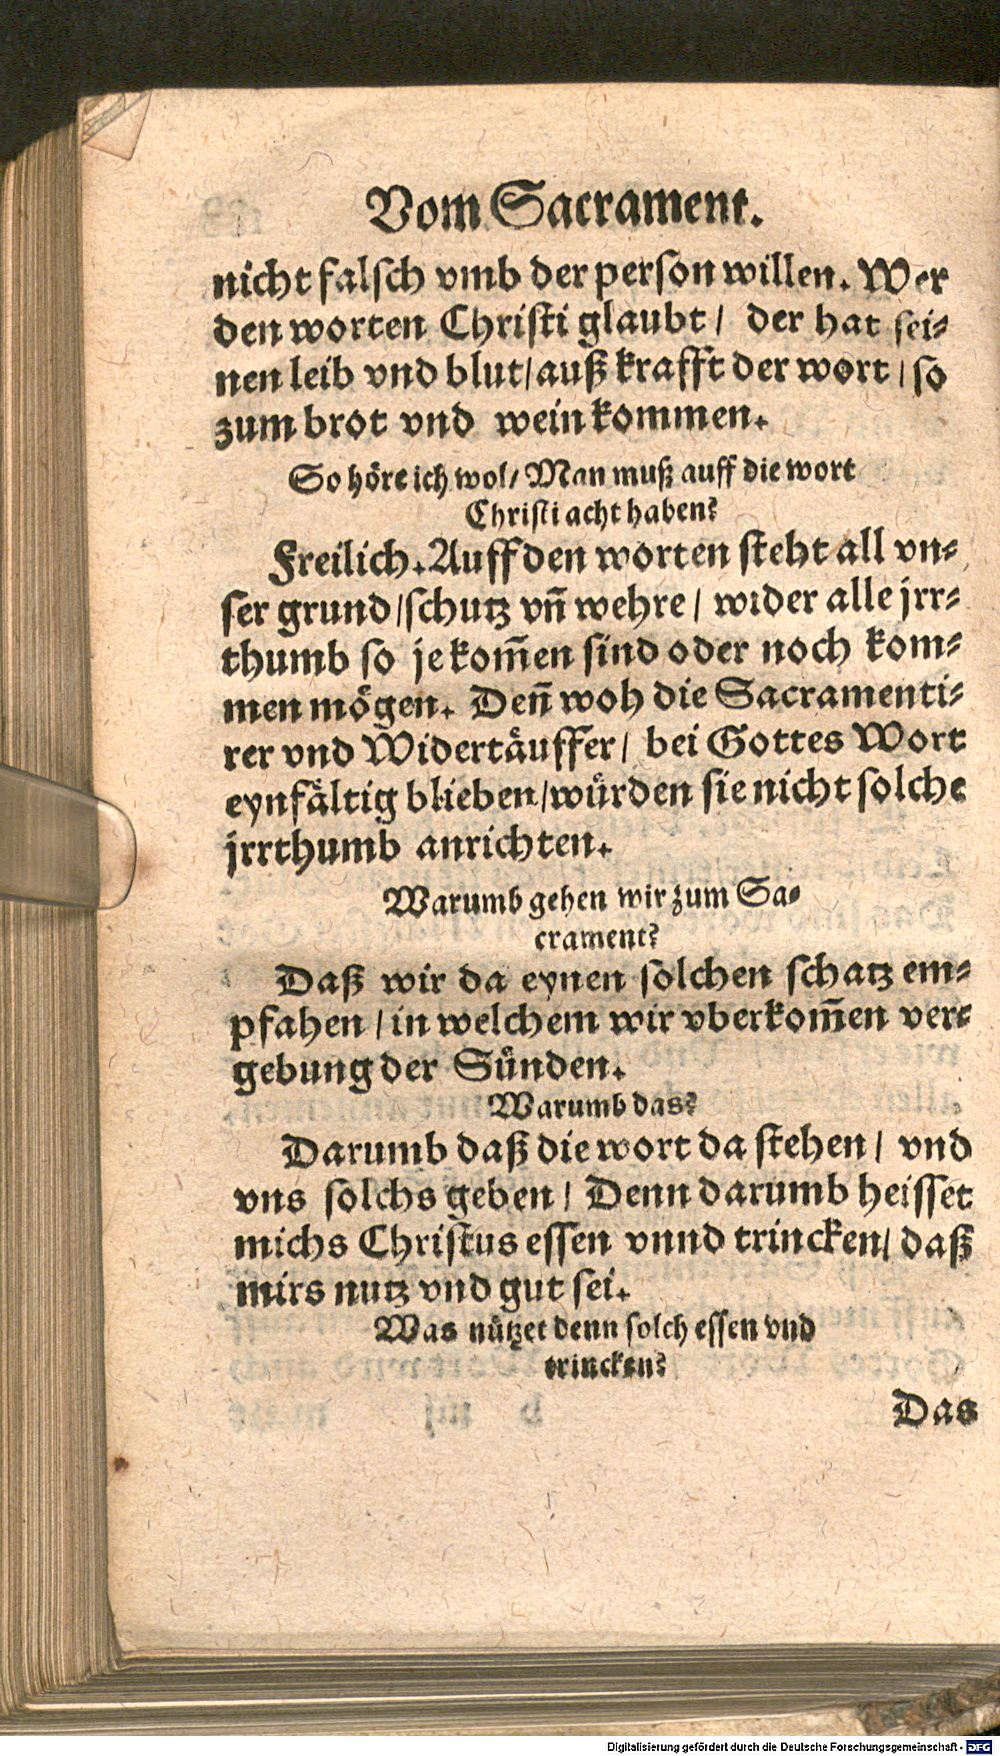 Vom Sacrament.
nicht falsch vmb der person willen. Wer
den worten Christi glaubt / der hat sei⸗
nen leib vnd blut/auß krafft der wort / so
zum brot vnd wein kommen.
So höre ich wol/ Man muß auff die wort
Christi acht haben?
Freilich. Auff den worten steht all vn⸗
ser grund/schutz vn̄ wehre / wider alle jrr⸗
thumb so je kom̄en sind oder noch kom⸗
men mögen. Den̄ woh die Sacramenti⸗
rer vnd Widertäuffer/ bei Gottes Wort
eynfältig blieben/würden sie nicht solche
jrrthumb anrichten.
Warumb gehen wir zum Sa⸗
crament?
Daß wir da eynen solchen schatz em⸗
pfahen / in welchem wir vberkom̄en ver⸗
gebung der Sünden.
Warumb das?
Darumb daß die wort da stehen / vnd
vns solchs geben / Denn darumb heisset
michs Christus essen vnnd trincken/ daß
mirs nutz vnd gut sei.
Was nützet denn solch essen vnd
trincken?
Das
Digitalisierung gefördert durch die Deutsche Forschungsgemeinschaft - DFG